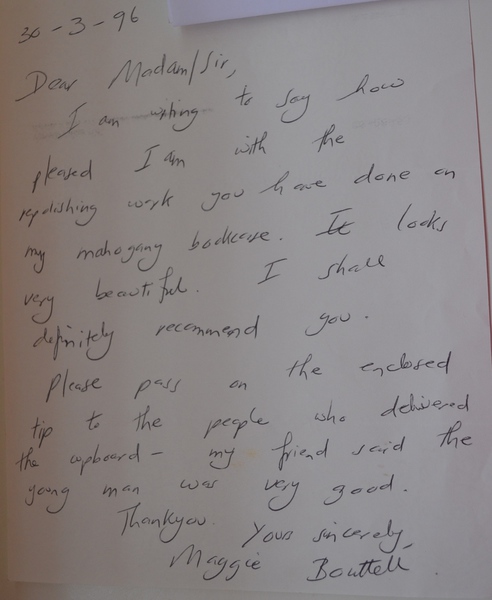 30-3-96
Dear Madam/Sir,
I am writing to say how
pleased I am with the
repolishing work you have done on
my mahogany bookcase. It looks
very beautiful. I shall
definitely recommend you.
Please pass on the enclosed
tip to the people who delivered
the cupboard - my friend said the
young man was very good.
Thankyou. Yours sincerely
Maggie Bouttell.